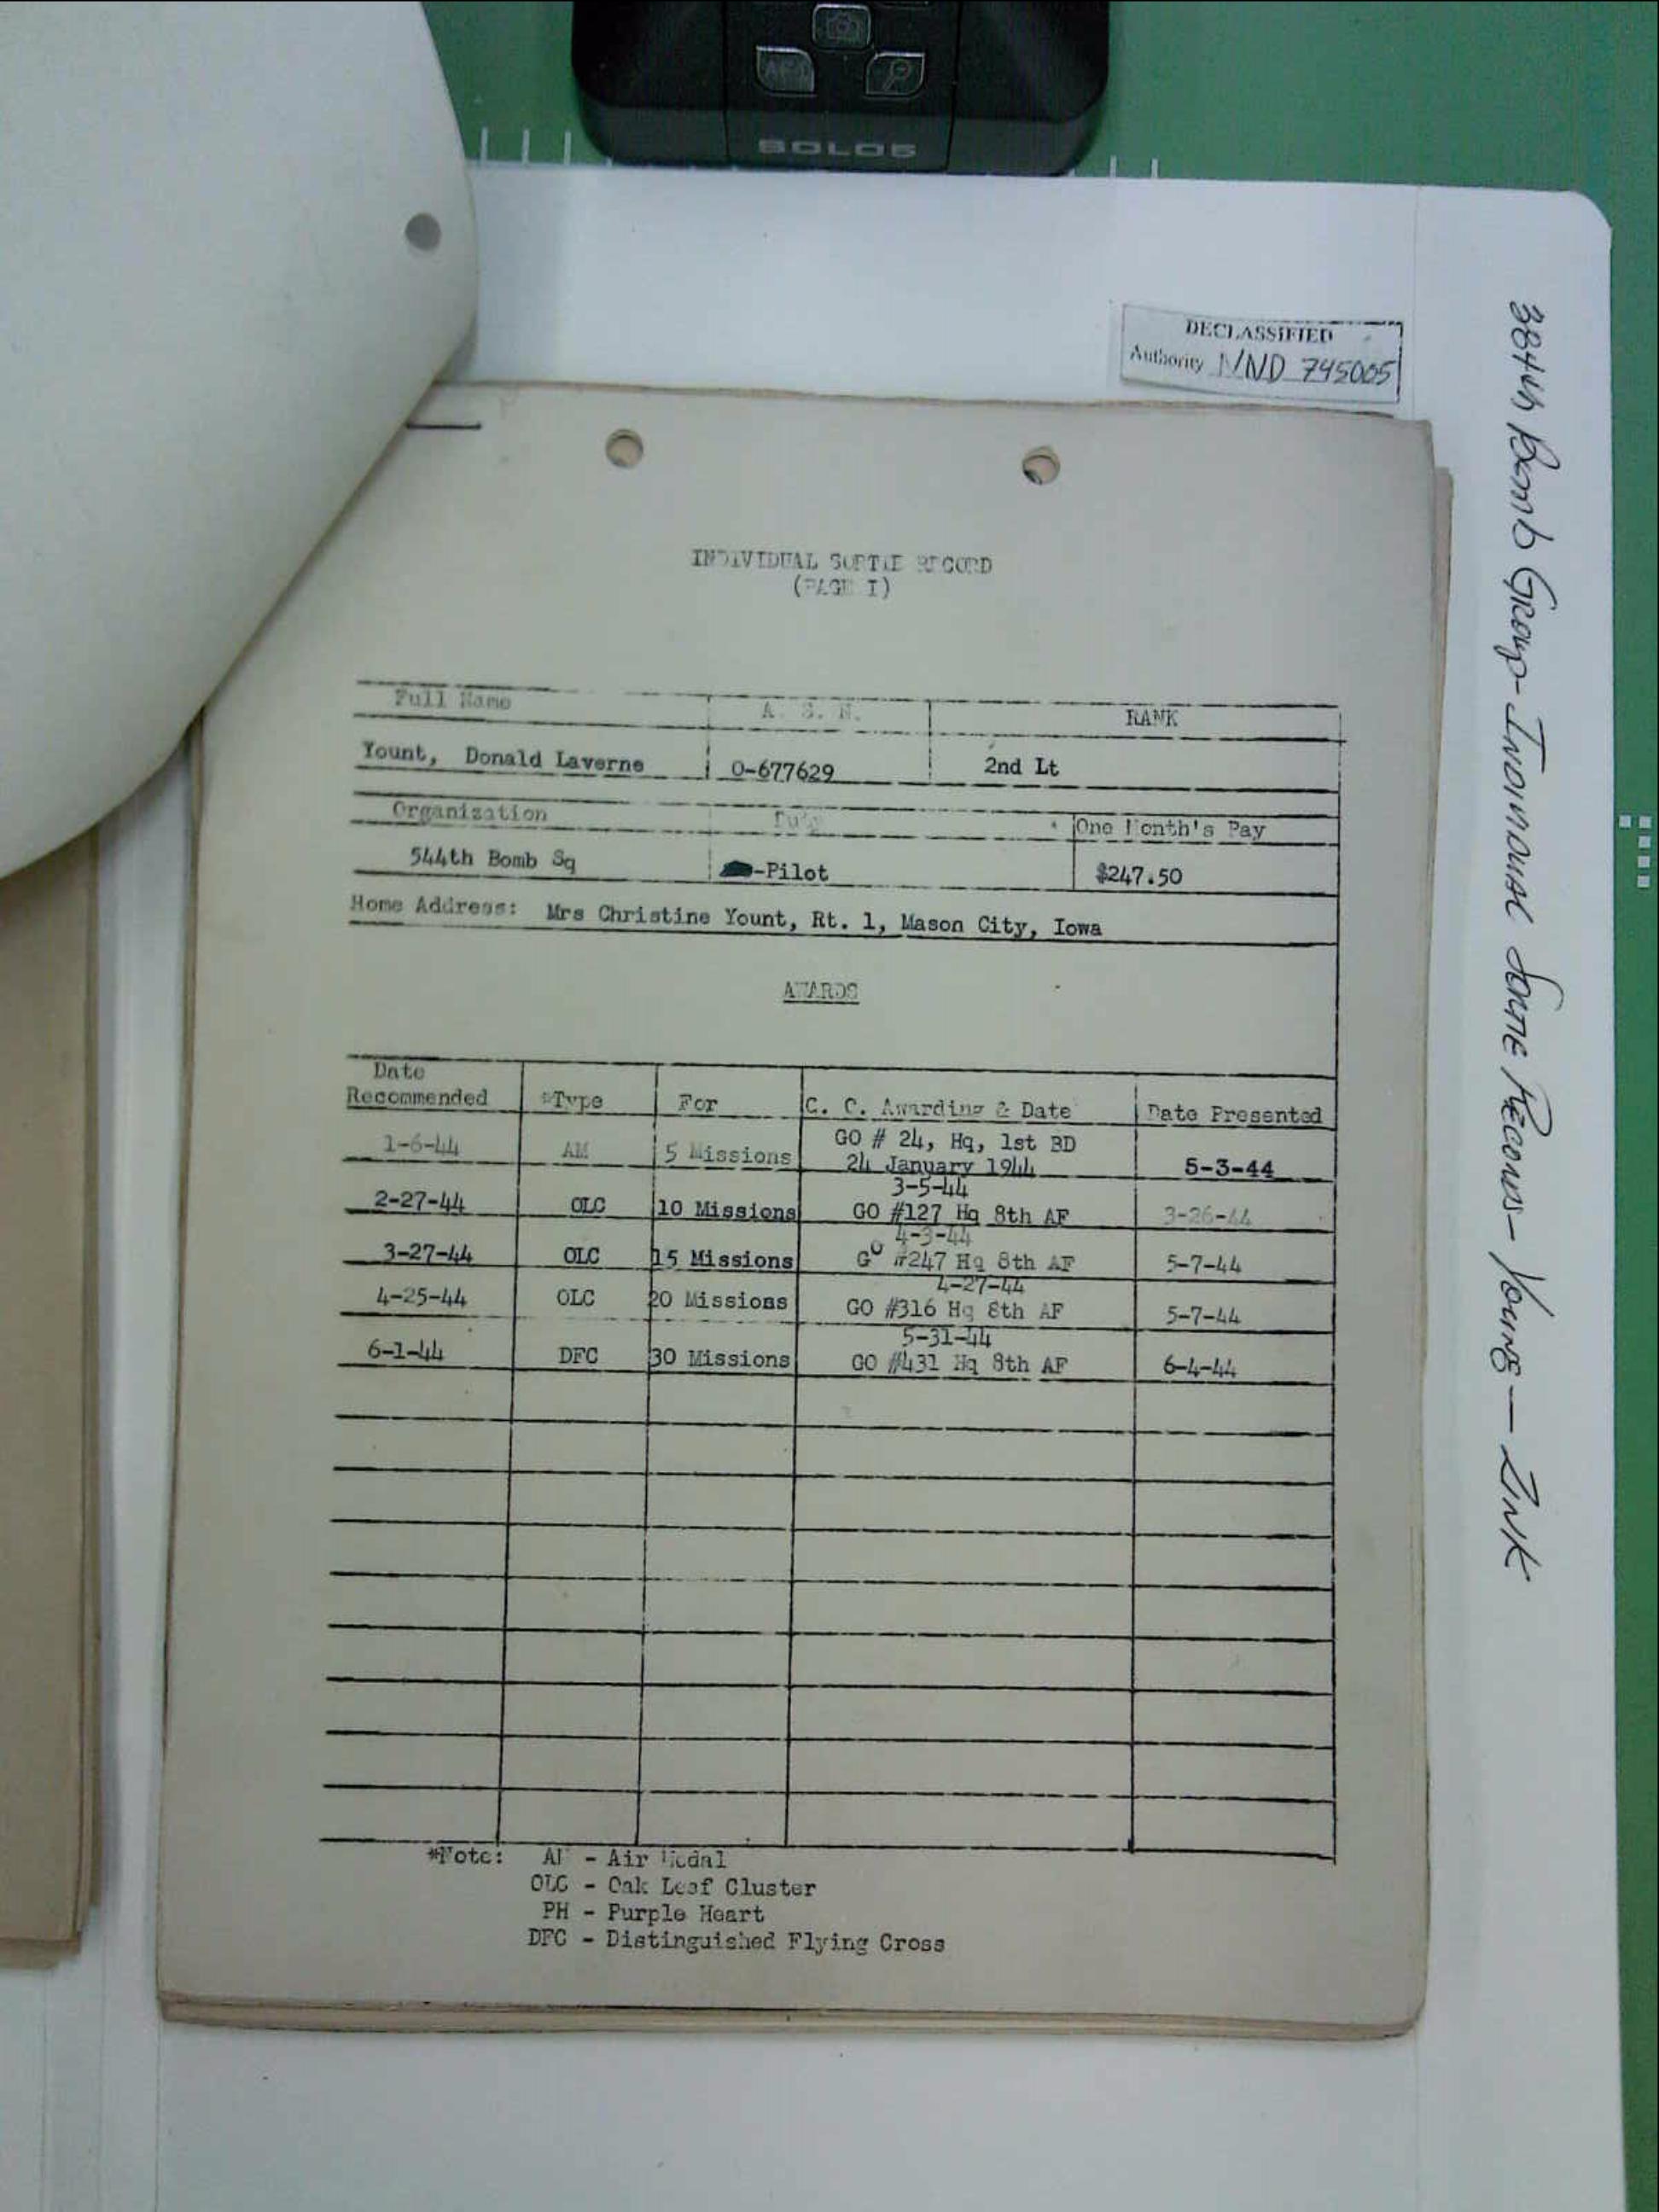 SOLO5
DECLASSIFIED
Authority NND 745005
384th Bomb Group - Individual Sortie Records - Young - Zink
INDIVIDUAL SORTIE RECORD
(PAGE I)
Full Name A. S. N. RANK
Yount, Donald Laverne 0-677629 2nd Lt
Organization Duty One Month's Pay
544th Bomb Sq -Pilot $247.50
Home Address: Mrs Christine Yount, Rt. 1, Mason City, Iowa
AWARDS
Date
Recommended *Type For C. C. Awarding & Date Date Presented
GO # 24, Hq, 1st BD
1-6-44 AM 5 Missions 24 January 1944 5-3-44
3-5-44
2-27-44 OLC 10 Missions GO #127 Hq 8th AF 3-26-44
4-3-44
3-27-44 OLC 15 Missions GO #247 Hq 8th AF 5-7-44
4-27-44
4-25-44 OLC 20 Missions GO #316 Hq 8th AF 5-7-44
5-31-44
6-1-44 DFC 30 Missions GO #431 Hq 8th AF 6-4-44
*Note: AM - Air Medal
OLC - Oak Leaf Cluster
PH - Purple Heart
DFC - Distinguished Flying Cross